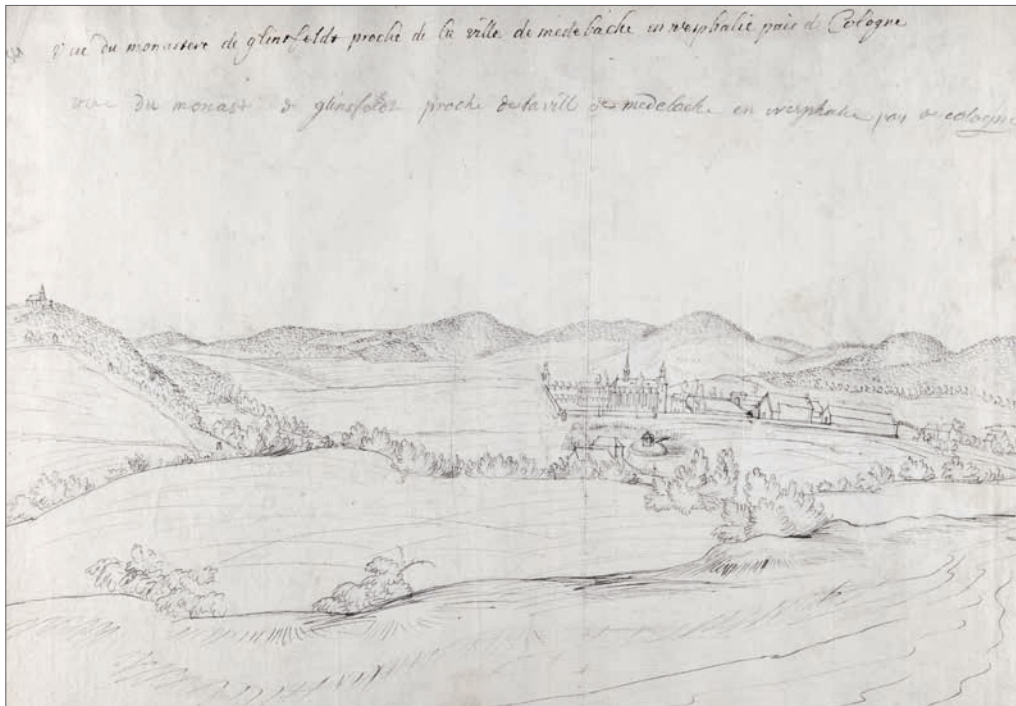 vue du monastere de glinsfeldt proche de la ville de medebache en wesphalie païs de Cologne
vue du monast de glinsfeldt proche de la vill de medebache en wesphalie pais de cologne